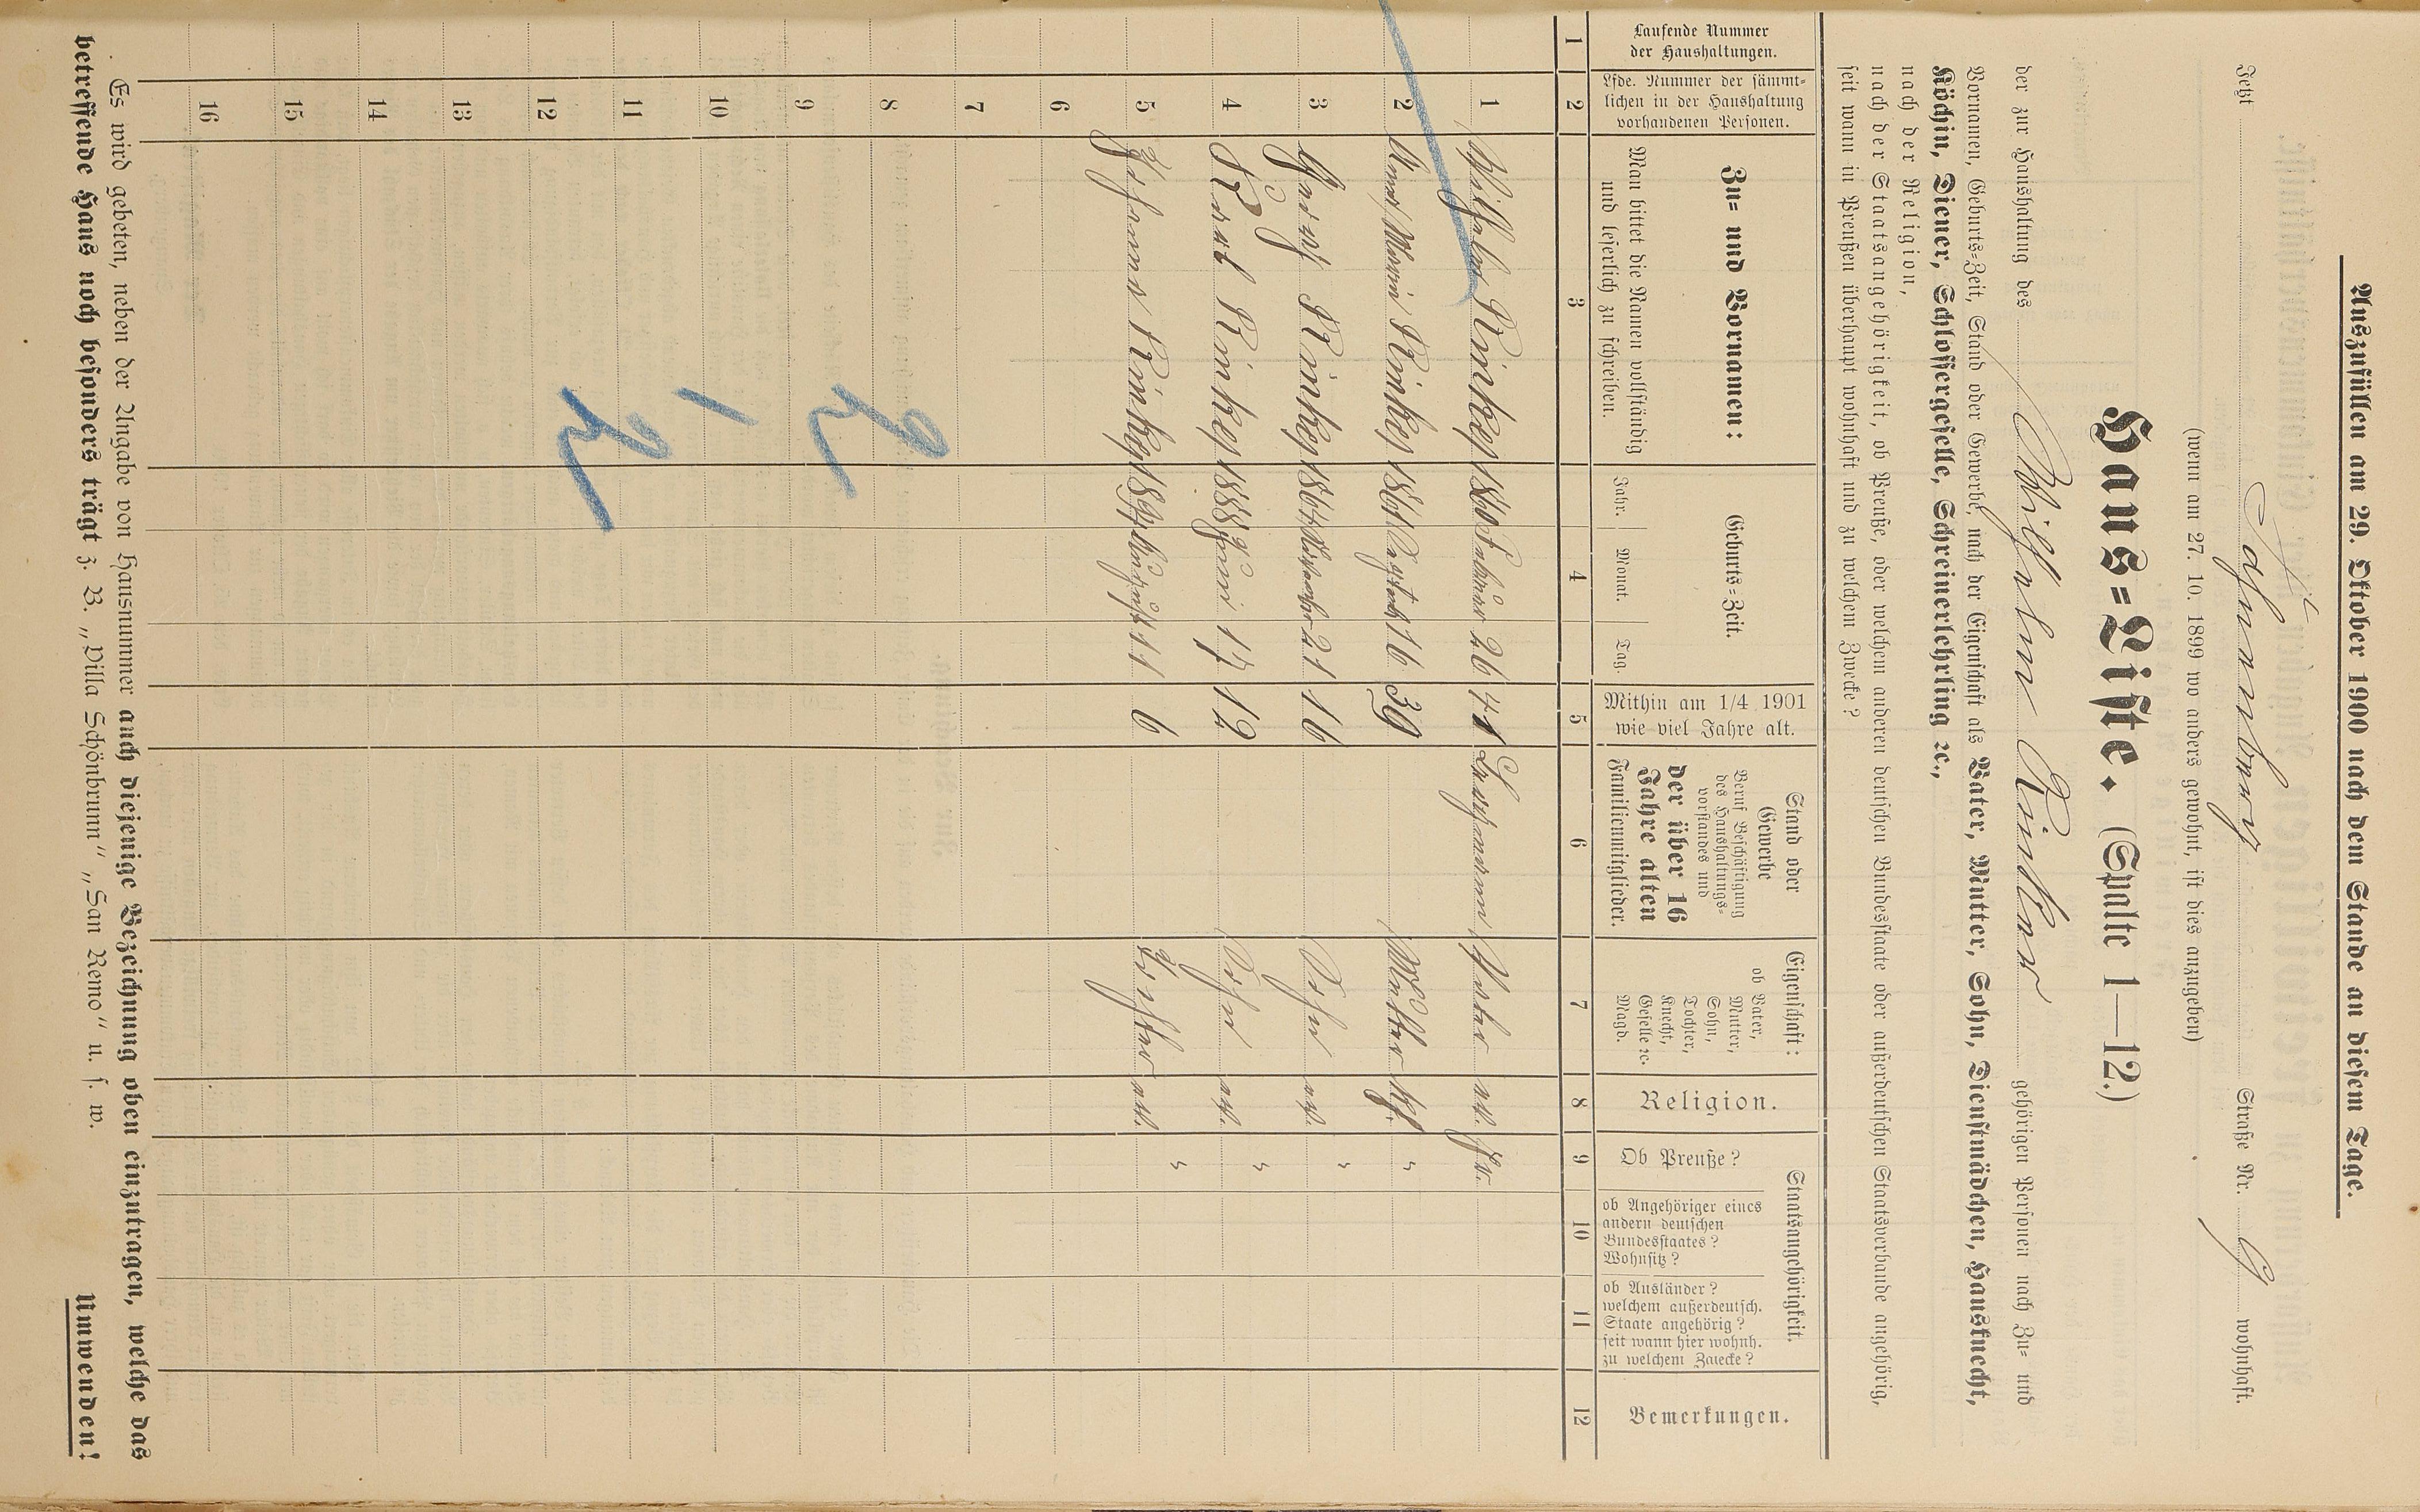 Auszufüllen am 29. Oktober 1900 nach dem Stande an diesem Tage.
Jetzt Schwanberg Straße Nr. 9 wohnhaft.
(wenn am 27. 10. 1899 wo anders gewohnt, ist dies anzugeben)
Haus=Liste. (Spalte 1—12.)
der zur Haushaltung des Wilhelm Rinker gehörigen Personen nach Zu= und
Vornamen, Geburts=Zeit, Stand oder Gewerbe, nach der Eigenschaft als Vater, Mutter, Sohn, Dienstmädchen, Hausknecht,
Köchin, Diener, Schlossergeselle, Schreinerlehrling ꝛc.,
nach der Religion,
nach der Staatsangehörigkeit, ob Preuße, oder welchem anderen deutschen Bundesstaate oder außerdeutschen Staatsverbande angehörig,
seit wann in Preußen überhaupt wohnhaft und zu welchem Zwecke?
Laufende Nummer der Haushaltungen.
Lfde. Nummer der sämmt=lichen in der Haushaltung vorhandenen Personen.
Zu= und Vornamen:
Man bittet die Namen vollständig und leserlich zu schreiben.
Geburts=Zeit.
Jahr. Monat. Tag.
Mithin am 1/4 1901 wie viel Jahre alt.
Stand oder Gewerbe
Beruf Beschäftigung des Haushaltungs=vorstandes und
der über 16 Jahre alten Familienmitglieder.
Eigenschaft:
ob Vater, Mutter, Sohn, Tochter, Knecht, Geselle ꝛc. Magd.
Religion.
Staatsangehörigkeit.
Ob Preuße?
ob Angehöriger eines andern deutschen Bundesstaates? Wohnsitz?
ob Ausländer? welchem außerdeutsch. Staate angehörig? seit wann hier wohnh. zu welchem Zwecke?
Bemerkungen.
1 2 3 4 5 6 7 8 9 10 11 12
1 Wilhelm Rinker 1860 Februar 26 41 Vater Pr.
2 Rinker 1861 16 39 Mutter "
3 Rinker 1864 21 16 Sohn "
4 Karl Rinker 1888 Juni 17 12 Sohn "
5 Johanna Rinker 1894 August 11 6 Tochter "
6
7
8
9
10
11
12
13
14
15
16
2
1
2
Es wird gebeten, neben der Angabe von Hausnummer auch diejenige Bezeichnung oben einzutragen, welche das
betreffende Haus noch besonders trägt z. B. „Villa Schönbrunn" „San Remo" u. s. w.
Umwenden!